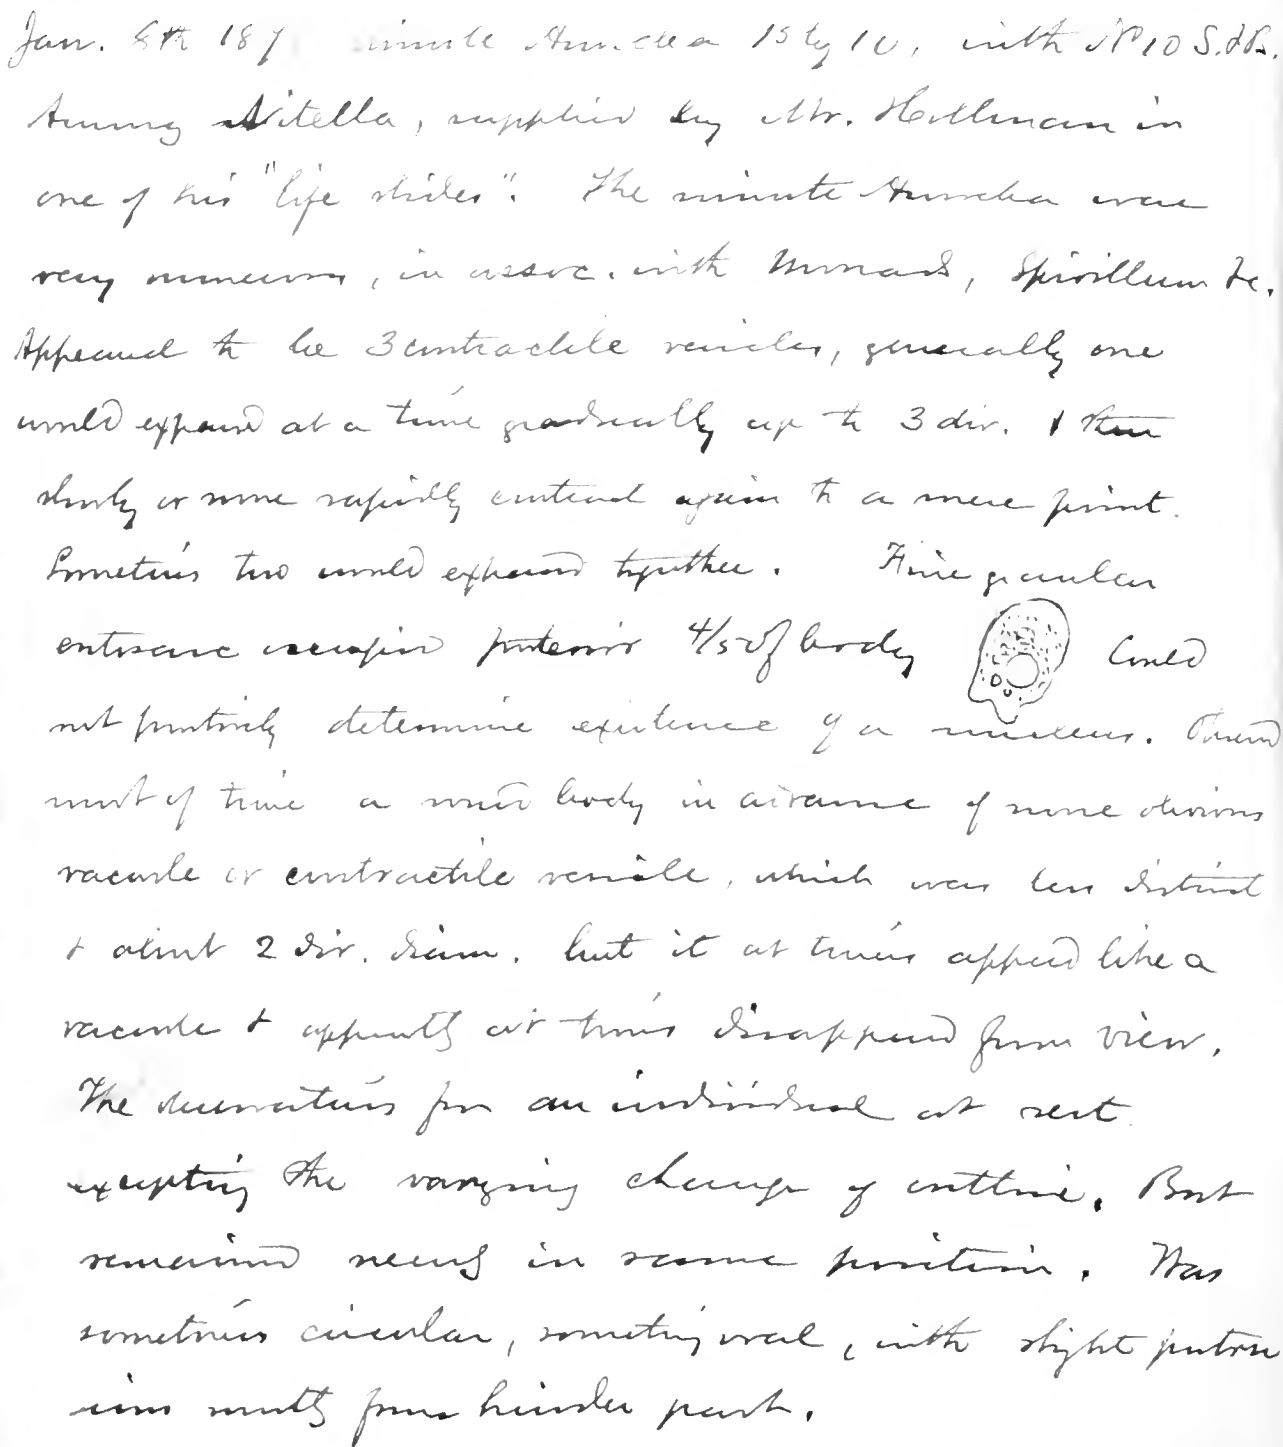 Jan. 8th 187 minute Amoeba 15 by 10, with No 10 S. & B.
Among Nitella, supplied by Mr. Hollman in
one of his "life slides". The minute Amoeba were
very numerous, in assoc. with Monads, Spirillum &c.
Appeared to be 3 contractile vesicles, generally one
would expand at a time gradually up to 3 div. & then
slowly or more rapidly contract again to a mere point.
Sometimes two would expand together. Fine granular
entosarc occupied posterior 4/5 of body Could
not positively determine existence of a nucleus. Observed
most of time a round body in advance of more obvious
vacuole or contractile vesicle, which was less distinct
& about 2 div. diam. but it at times appeared like a
vacuole & apparently at times disappeared from view.
The observations for an individual at rest
excepting the varying change of outline. But
remained nearly in same position. Was
sometimes circular, sometimes oval, with slight protru
sions mostly from hinder part.